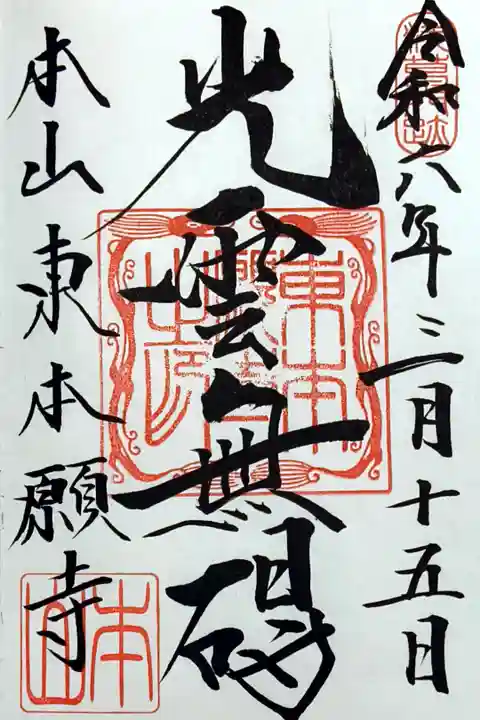 令和六年三月十五日
光雲無碍
本山東本願寺
東本願寺之印